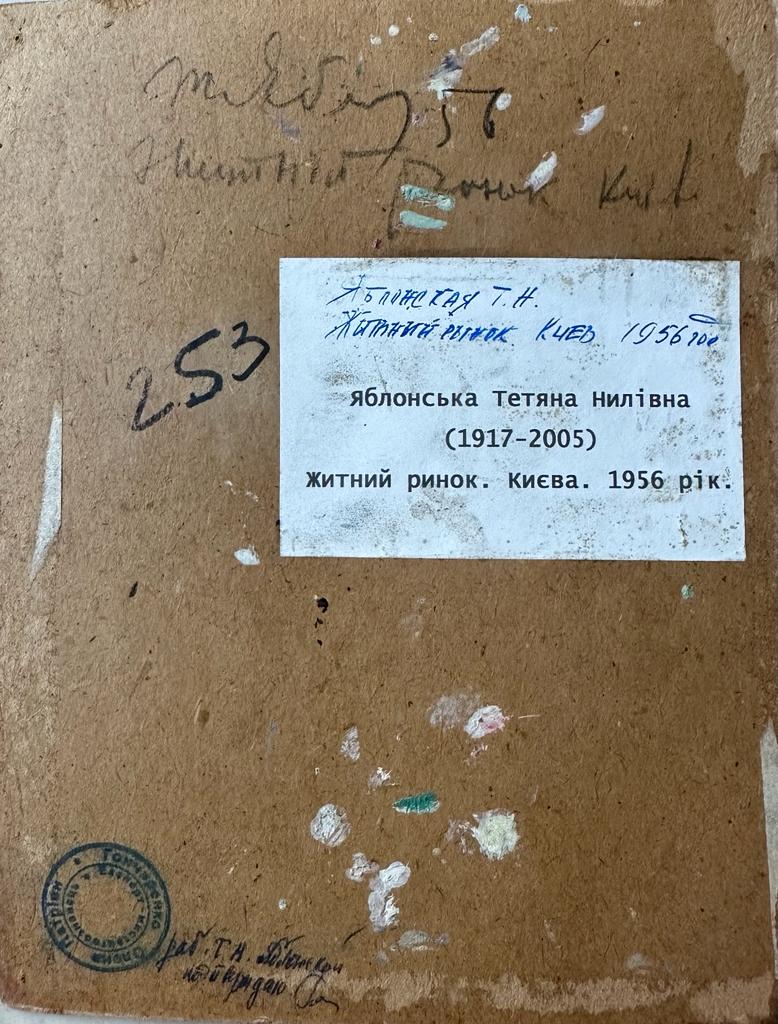 Т. Ябл 56
Житній ринок Київ
253
Яблонская Т. Н.
Житний рынок Киев 1956 год
Яблонська Тетяна Нилівна
(1917-2005)
Житний ринок. Києва. 1956 рік.
Гончаренко Олена
Експерт мистецтвознавець
раб. Т. Н. Яблонской
подтверждаю